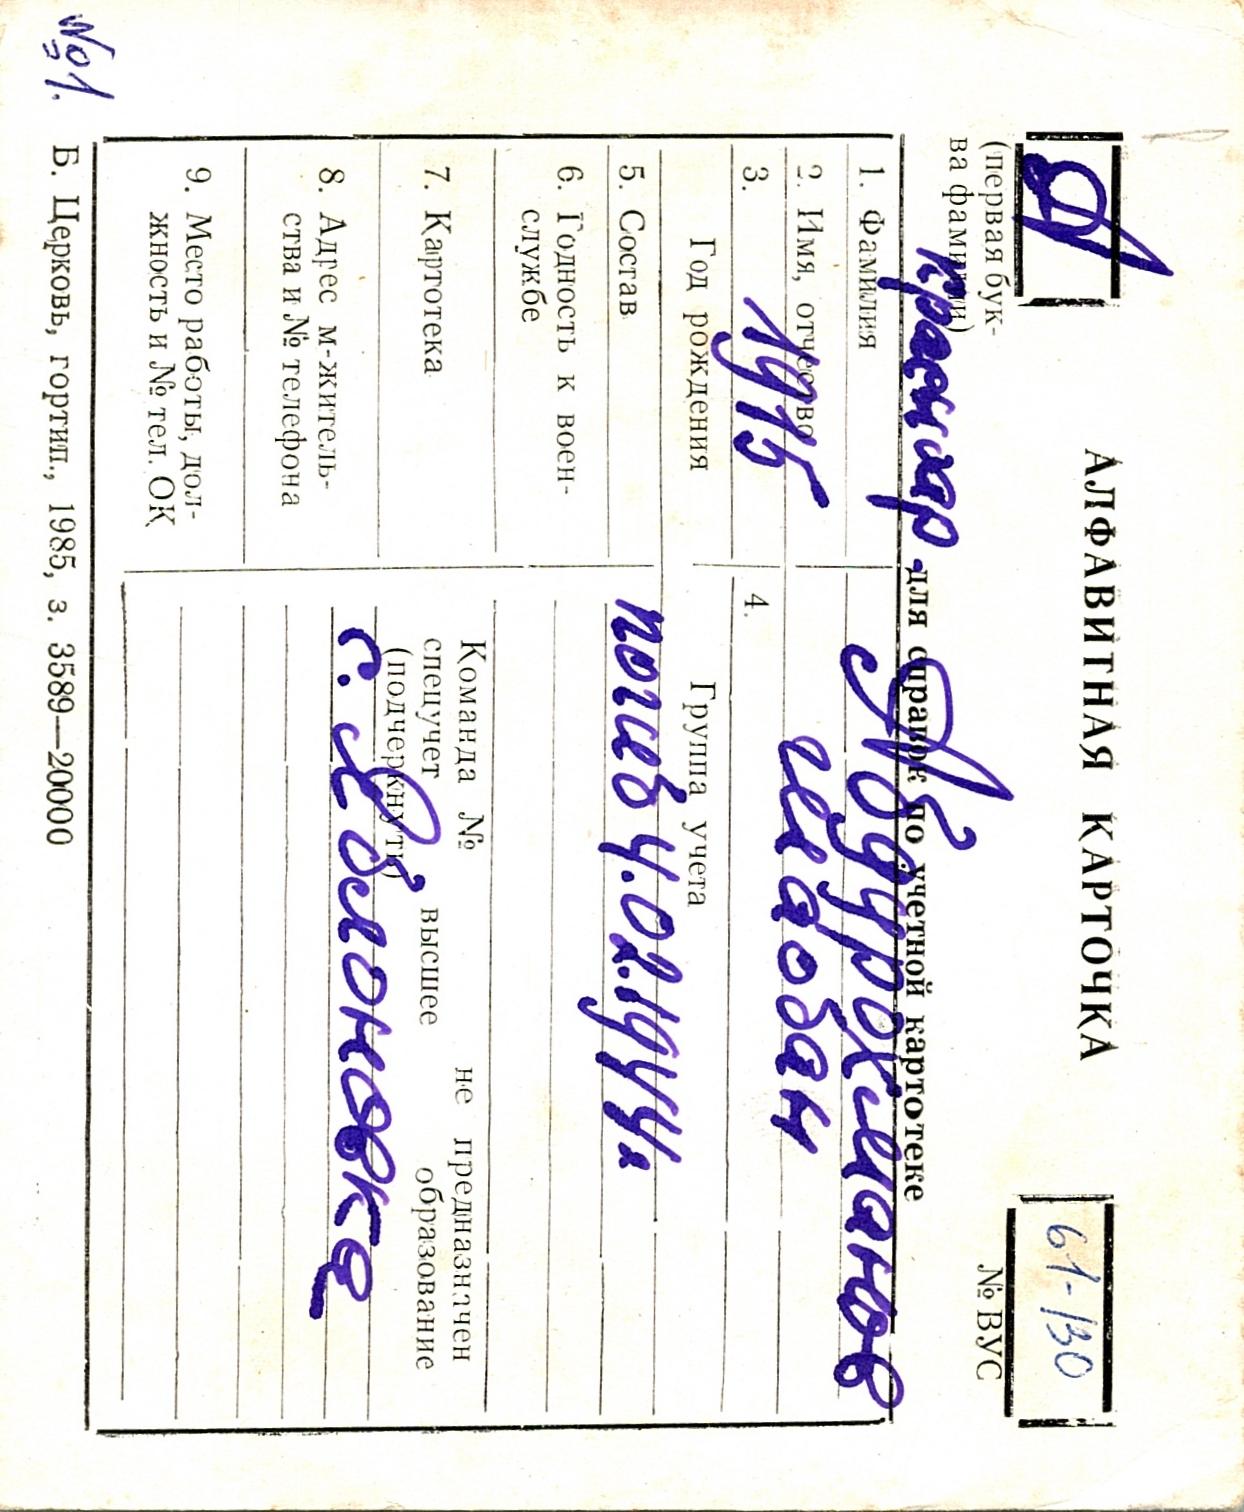 №1.
А
(первая бук-
ва фамилии)
АЛФАВИТНАЯ КАРТОЧКА
61-130
№ ВУС
для справок по учетной картотеке
1. Фамилия
Абдурохманов
2. Имя, отчество
Шаобан
3. Год рождения
1915
4. Группа учета
5. Состав
погиб 4.02.1944г.
6. Годность к воен-
службе
7. Картотека
Команда № не предназначен
спецучет высшее образование
(подчеркнуть)
8. Адрес м-житель-
ства и № телефона
с. Яблоновка
9. Место работы, дол-
жность и № тел. ОК
Б. Церковь, гортип., 1985, з. 3589—20000